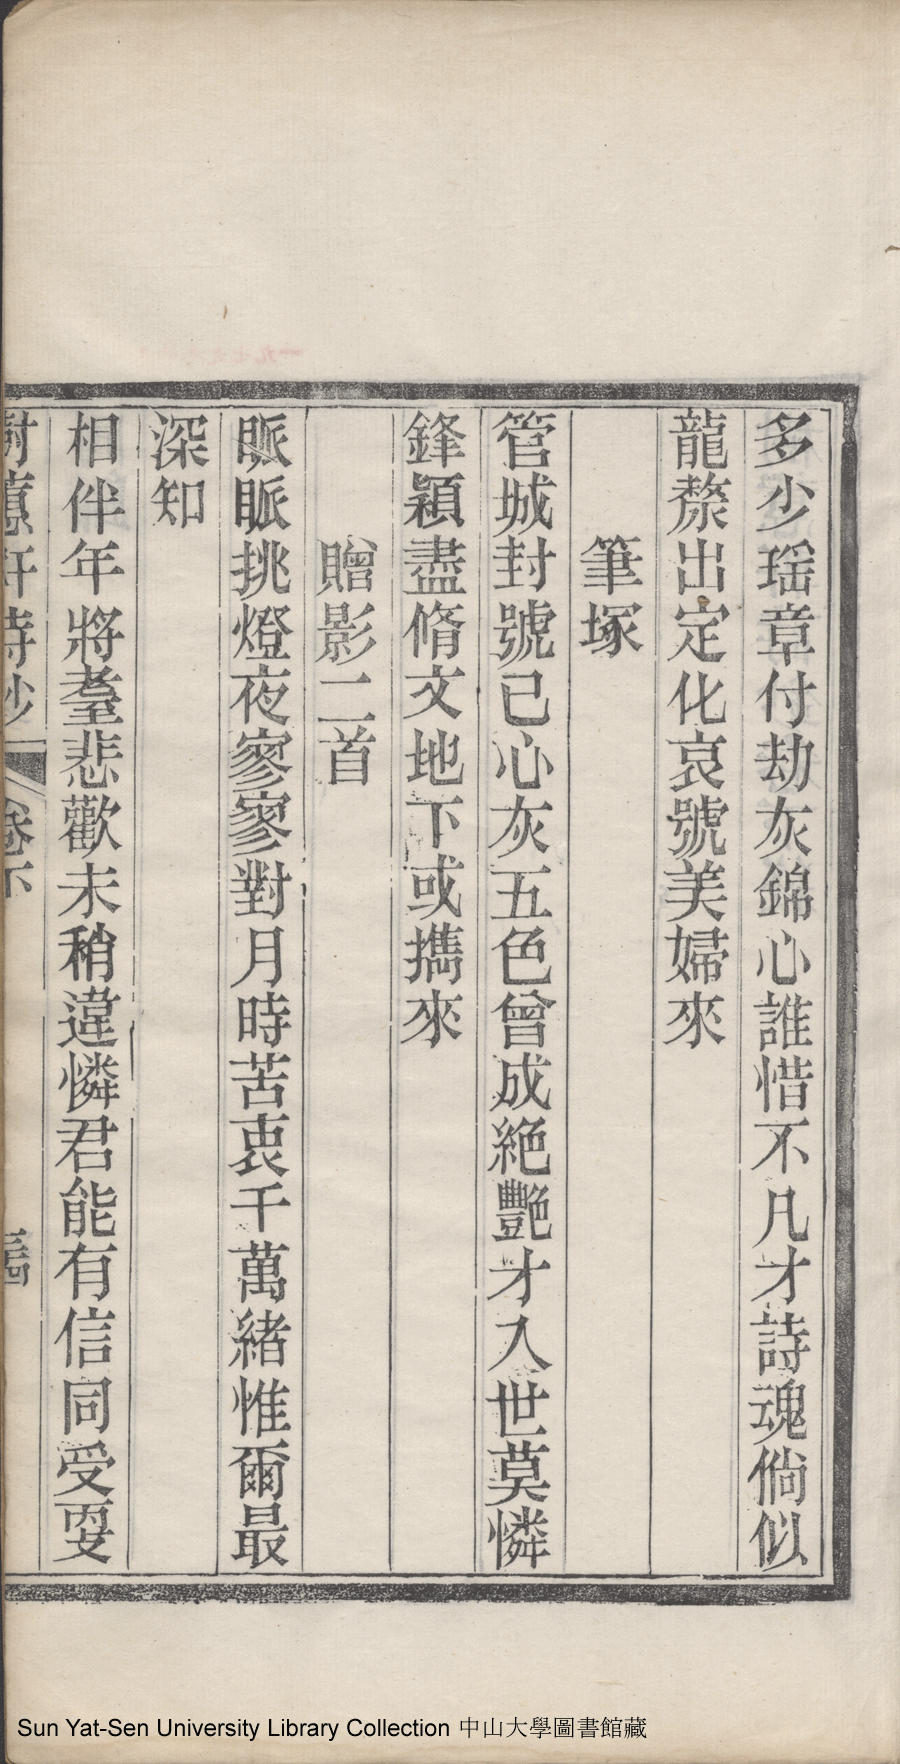 多少瑶章付劫灰錦心誰惜不凡才詩魂倘似
龍漦出定化哀號美婦來
筆塚
管城封號已心灰五色曾成絕艷才入世莫憐
鋒穎盡脩文地下或攜來
贈影二首
脈脈挑燈夜寥寥對月時苦衷千萬緒惟爾最
深知
相伴年將耋悲歡未稍違憐君能有信同受耍
樹蕙軒詩鈔
卷下
Sun Yat-Sen University Library Collection 中山大學圖書館藏